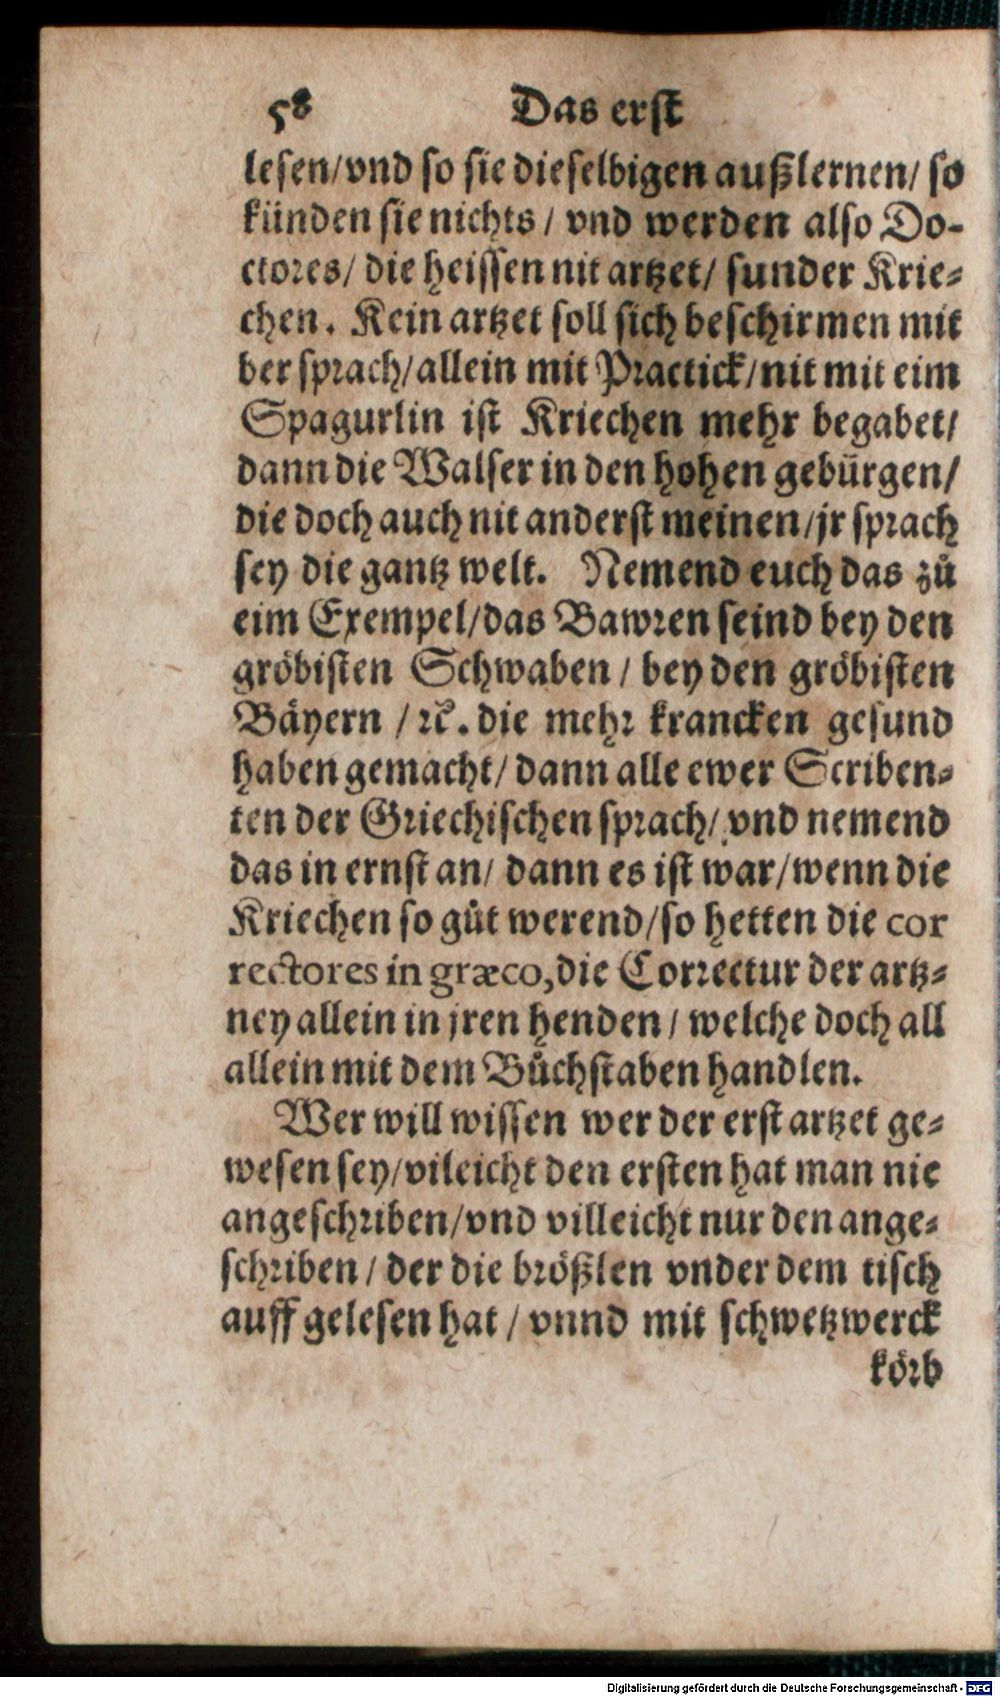 58 Das erst
lesen/vnd so sie dieselbigen außlernen/ so
künden sie nichts / vnd werden also Do-
ctores/ die heissen nit artzet/ sunder Krie-
chen. Kein artzet soll sich beschirmen mit
der sprach/allein mit Practick/nit mit eim
Spagurlin ist Kriechen mehr begabet/
dann die Walser in den hohen gebürgen/
die doch auch nit anderst meinen/jr sprach
sey die gantz welt. Nemend euch das zů
eim Exempel/das Bawren seind bey den
gröbisten Schwaben / bey den gröbisten
Bäyern /ꝛc. die mehr krancken gesund
haben gemacht/ dann alle ewer Scriben-
ten der Griechischen sprach/ vnd nemend
das in ernst an/ dann es ist war/wenn die
Kriechen so gůt werend/so hetten die cor
rectores in græco,die Correctur der artz-
ney allein in jren henden / welche doch all
allein mit dem Bůchstaben handlen.
Wer will wissen wer der erst artzet ge-
wesen sey/vileicht den ersten hat man nie
angeschriben/vnd villeicht nur den ange-
schriben / der die brößlen vnder dem tisch
auff gelesen hat / vnnd mit schwetzwerck
körb
Digitalisierung gefördert durch die Deutsche Forschungsgemeinschaft - DFG